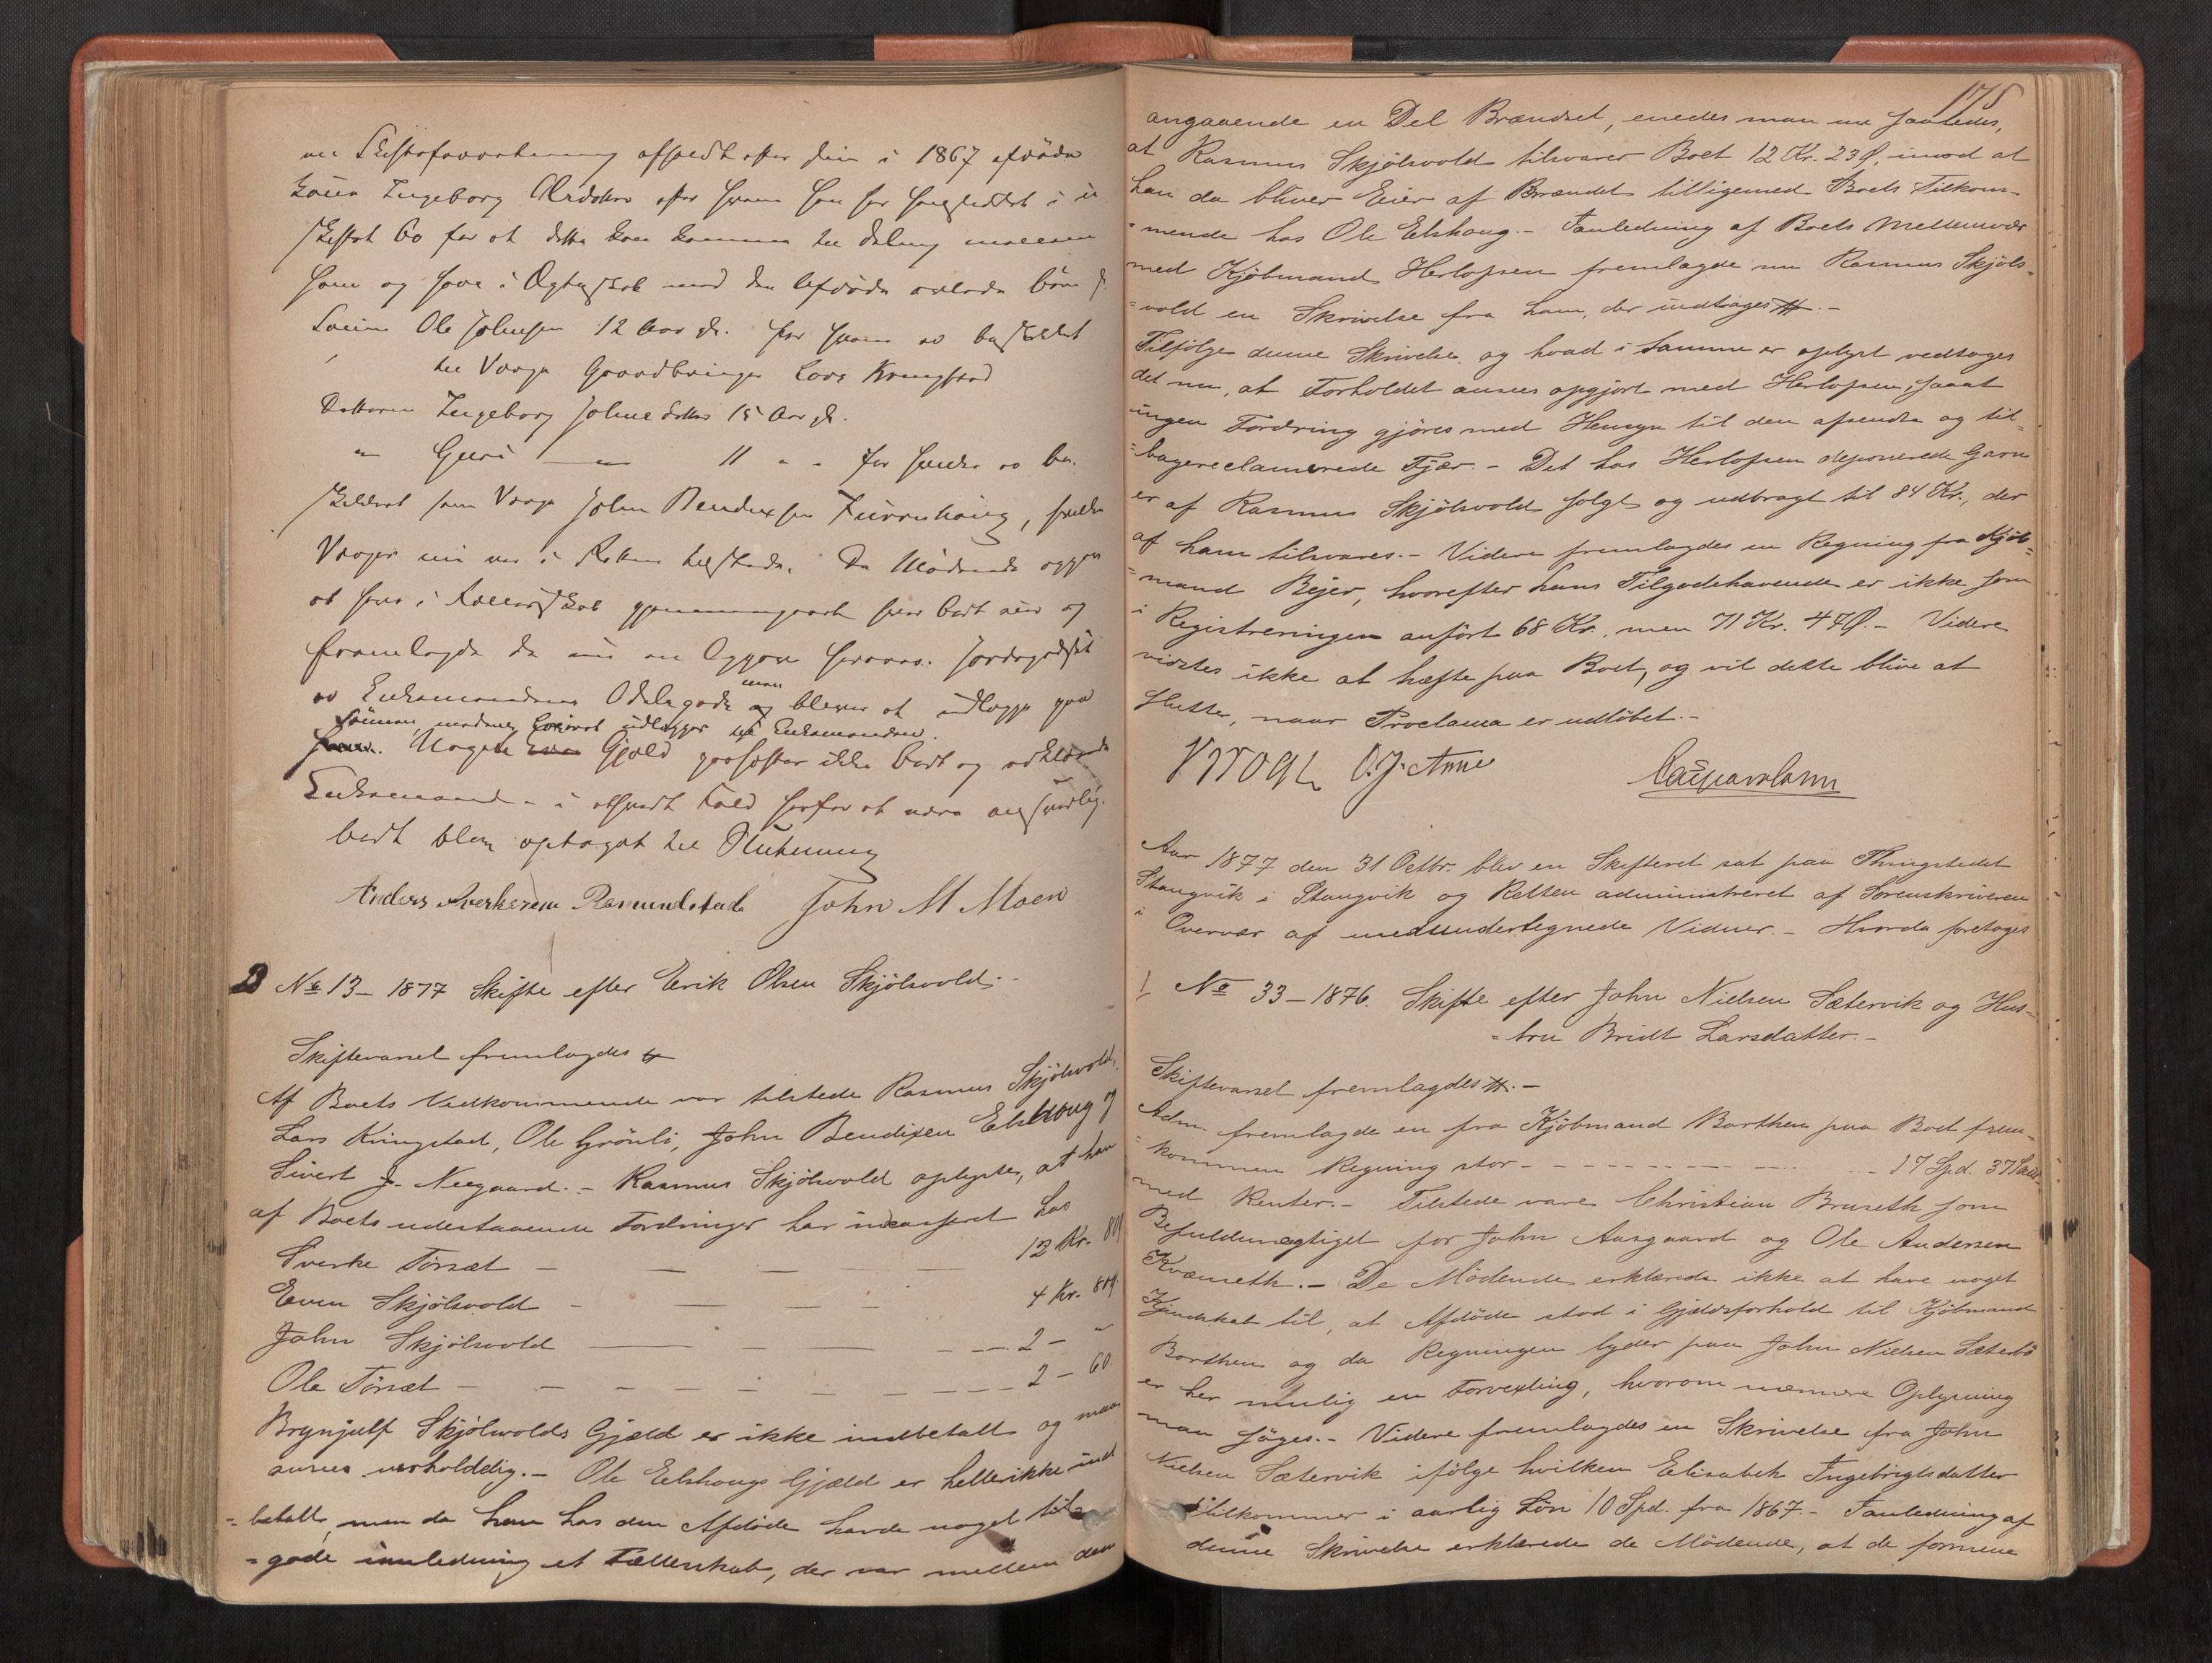 en Skifteforretning afholdt efter den i 1867 afdøde
Kone Ingeborg Olsdatter efter hvem han har hensiddet i u-
skiftet Bo for at dette kan komme til Deling mellem
ham og hans i Ægteskab med den afdøde avlede Børn
Sønnen Ole Johnsen 12 Aar gl. for hvem er beskikket
til Værge Gaardbruger Lars Kringstad
Datteren Ingeborg Johnsdatter 15 Aar gl.
" Guri — 11 " - for hvilke er be-
skikket som Værge John Bendixsen, hvilke
Værger nu var i Retten tilstede. De Mødende
at have i Fællesskab gjennemgaaet Boet og
fremlagde da nu en Opgave herover. Jordegodset
er Enkemandens Odelsgods men bliver at udlægge paa
Sønnen, medens Løsøret udlægges til Enkemanden.
Nogen Gjæld paahefter ikke Boet og erklærede
Enkemanden i al Fald herfor at være ansvarlig.
Boet blev optaget til Slutning
Anders Sverkesen Ramundstad John M Moen
B No 13 - 1877 Skifte efter Erik Olsen Skjölsvold.-
Skiftevarsel fremlagdes #
Af Boets Vedkommende var tilstede Rasmus Skjölsvold,
Lars Kringstad, Ole Grönli, John Bendixen Elshoug og
Sivert J. Neegaard. - Rasmus Skjölsvold oplyste, at han
af Boets udestaaende Fordringer har incasseret hos
Sverke Törset — — — — 12 Kr. 80
Even Skjölsvold - — — - 4 Kr. 80
John Skjölsvold — — — - - 2 - "
Ole Törset - - - - - - - - 2 - 60
Brynjulf Skjölsvolds Gjæld er ikke indbetalt og maa
ansees uerholdelig. - Ole Elshougs Gjæld er heller ikke ind
= betalt, men da han hos den Afdöde havde noget til
= gode i anledning et Fællesskab, der var mellem dem
175
angaaende en Del Brændsel, enedes man nu saaledes,
at Rasmus Skjölsvold tilsvarer Boet 12 Kr. 23 Ø. imod at
han da bliver Eier af Brændet tilligemed Boets Tilkom-
= mende hos Ole Elshoug. - I anledning af Boets Mellemvær
med Kjöbmand Herlofsen fremlagde nu Rasmus Skjöls-
= vold en Skrivelse fra ham, der indtages #. -
Tilfölge denne Skrivelse og hvad i Samme er oplyst vedtoges
det nu, at Forholdet ansees opgjort med Herlofsen, saaat
ingen Fordring gjöres med Hensyn til den afsendte og til-
= bagereclamerede Fjær. - Det hos Herlofsen deponerede Garn
er af Rasmus Skjölsvold solgt og udbragt til 84 Kr., der
af ham tilsvares. - Videre fremlagdes en Regning fra Kjöb-
= mand Bejer, hvorefter hans Tilgodehavende er ikke som
i Registreringen anfört 68 Kr., men 71 Kr. 47 Ø. - Videre
vidstes ikke at hæfte paa Boet, og vil dette blive at
slutte, naar Proclama er udlöbet. -
Krogh O. J. Aune
Aar 1877 den 31 Octbr. blev en Skifteret sat paa Thingstedet
Stangvik i Stangvik og Retten administreret af Sorenskriveren
i Overvær af medundertegnede Vidner. - Hvorda foretoges
No 33 - 1876. Skifte efter John Nielsen Sætervik og Hus-
= tru Bridt Larsdatter. -
Skiftevarsel fremlagdes #. -
Adm. fremlagde en fra Kjöbmand Borthen paa Boet frem-
= kommen Regning stor - - - - - - 17 Spd. 37 Skill.
med Renter. - Tilstede vare Christian Bruseth som
Befuldmægtiget for John Aasgaard og Ole Andersen
Kvæmseth. - De Mödende erklærede ikke at have noget
Kjendskab til, at Afdöde stod i Gjældsforhold til Kjöbmand
Borthen og da Regningen lyder paa John Nielsen Sæterbö
er her mulig en Forvexling, hvorom nærmere Oplysning
man söger. - Videre fremlagdes en Skrivelse fra John
Nielsen Sætervik ifölge hvilken Elisabeth Ingebrigtsdatter
tilkommer i aarlig Lön 10 Spd. fra 1867. - I anledning af
denne Skrivelse erklærede de Mödende, at de formene